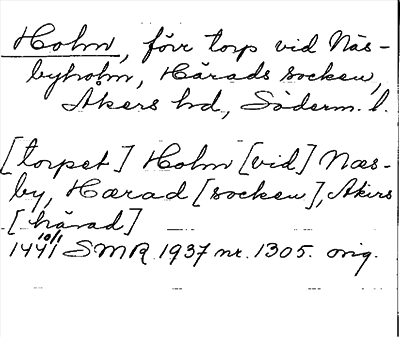 Holm, förr torp vid Näs-
byholm, Härads socken,
Åkers hd., Söderm. l.
[torpet] Holm [vid] Næs-
by, Hærad [socken], Akirs
[härad]
10/1
1441 SMR 1937 nr. 1305. orig.